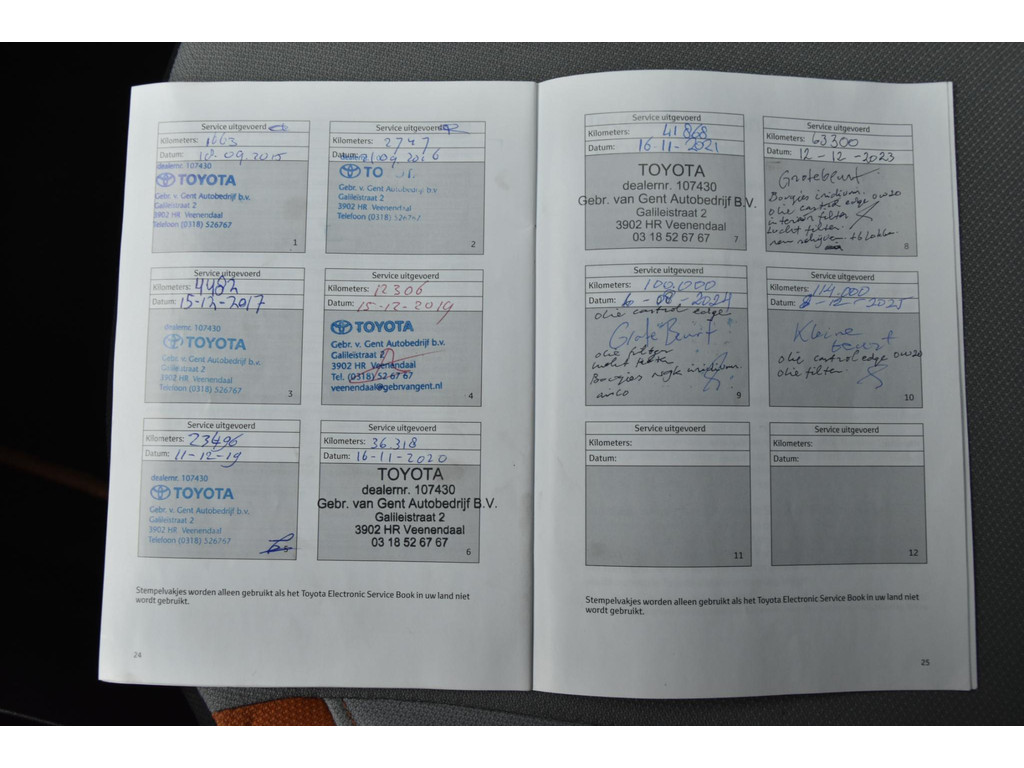 Service uitgevoerd
Kilometers: 1663
Datum: 10.09.2015
dealernr. 107430
TOYOTA
Gebr. v. Gent Autobedrijf b.v.
Galileistraat 2
3902 HR Veenendaal
Telefoon (0318) 526767
1
Service uitgevoerd
Kilometers: 2747
Datum: 21.09.2016
TO
Gebr. v. Gent Autobedrijf b.v.
Galileistraat 2
3902 HR Veenendaal
Telefoon (0318)
2
Service uitgevoerd
Kilometers: 4482
Datum: 15-12-2017
dealernr. 107430
TOYOTA
Gebr. v. Gent Autobedrijf b.v.
Galileistraat 2
3902 HR Veenendaal
Telefoon (0318) 526767
3
Service uitgevoerd
Kilometers: 12306
Datum: 15-12-2019
TOYOTA
Gebr. v. Gent Autobedrijf b.v.
Galileistraat 2
3902 HR Veenendaal
Tel. (0318) 52 67 67
veenendaal@gebrvangent.nl
4
Service uitgevoerd
Kilometers: 23496
Datum: 11-12-19
dealernr. 107430
TOYOTA
Gebr. v. Gent Autobedrijf b.v.
Galileistraat 2
3902 HR Veenendaal
Telefoon (0318) 526767
Service uitgevoerd
Kilometers: 36.318
Datum: 16-11-2020
TOYOTA
dealernr. 107430
Gebr. van Gent Autobedrijf B.V.
Galileistraat 2
3902 HR Veenendaal
03 18 52 67 67
6
Stempelvakjes worden alleen gebruikt als het Toyota Electronic Service Book in uw land niet
wordt gebruikt.
24
Service uitgevoerd
Kilometers: 41868
Datum: 16-11-2021
TOYOTA
dealernr. 107430
Gebr. van Gent Autobedrijf B.V.
Galileistraat 2
3902 HR Veenendaal
03 18 52 67 67
7
Service uitgevoerd
Kilometers: 63300
Datum: 12-12-2023
Grotebeurt
Bougies iridium
olie castrol edge 0w20
interieur filter
lucht filter
rem schijven + blokken
8
Service uitgevoerd
Kilometers: 100.000
Datum: -08-2024
olie castrol edge
Grote Beurt
olie filter
lucht filter
Bougies iridium
9
Service uitgevoerd
Kilometers: 114.000
Datum: 8-12-2025
Kleine
beurt
olie castrol edge 0w20
olie filter
10
Service uitgevoerd
Kilometers:
Datum:
11
Service uitgevoerd
Kilometers:
Datum:
12
Stempelvakjes worden alleen gebruikt als het Toyota Electronic Service Book in uw land niet
wordt gebruikt.
25